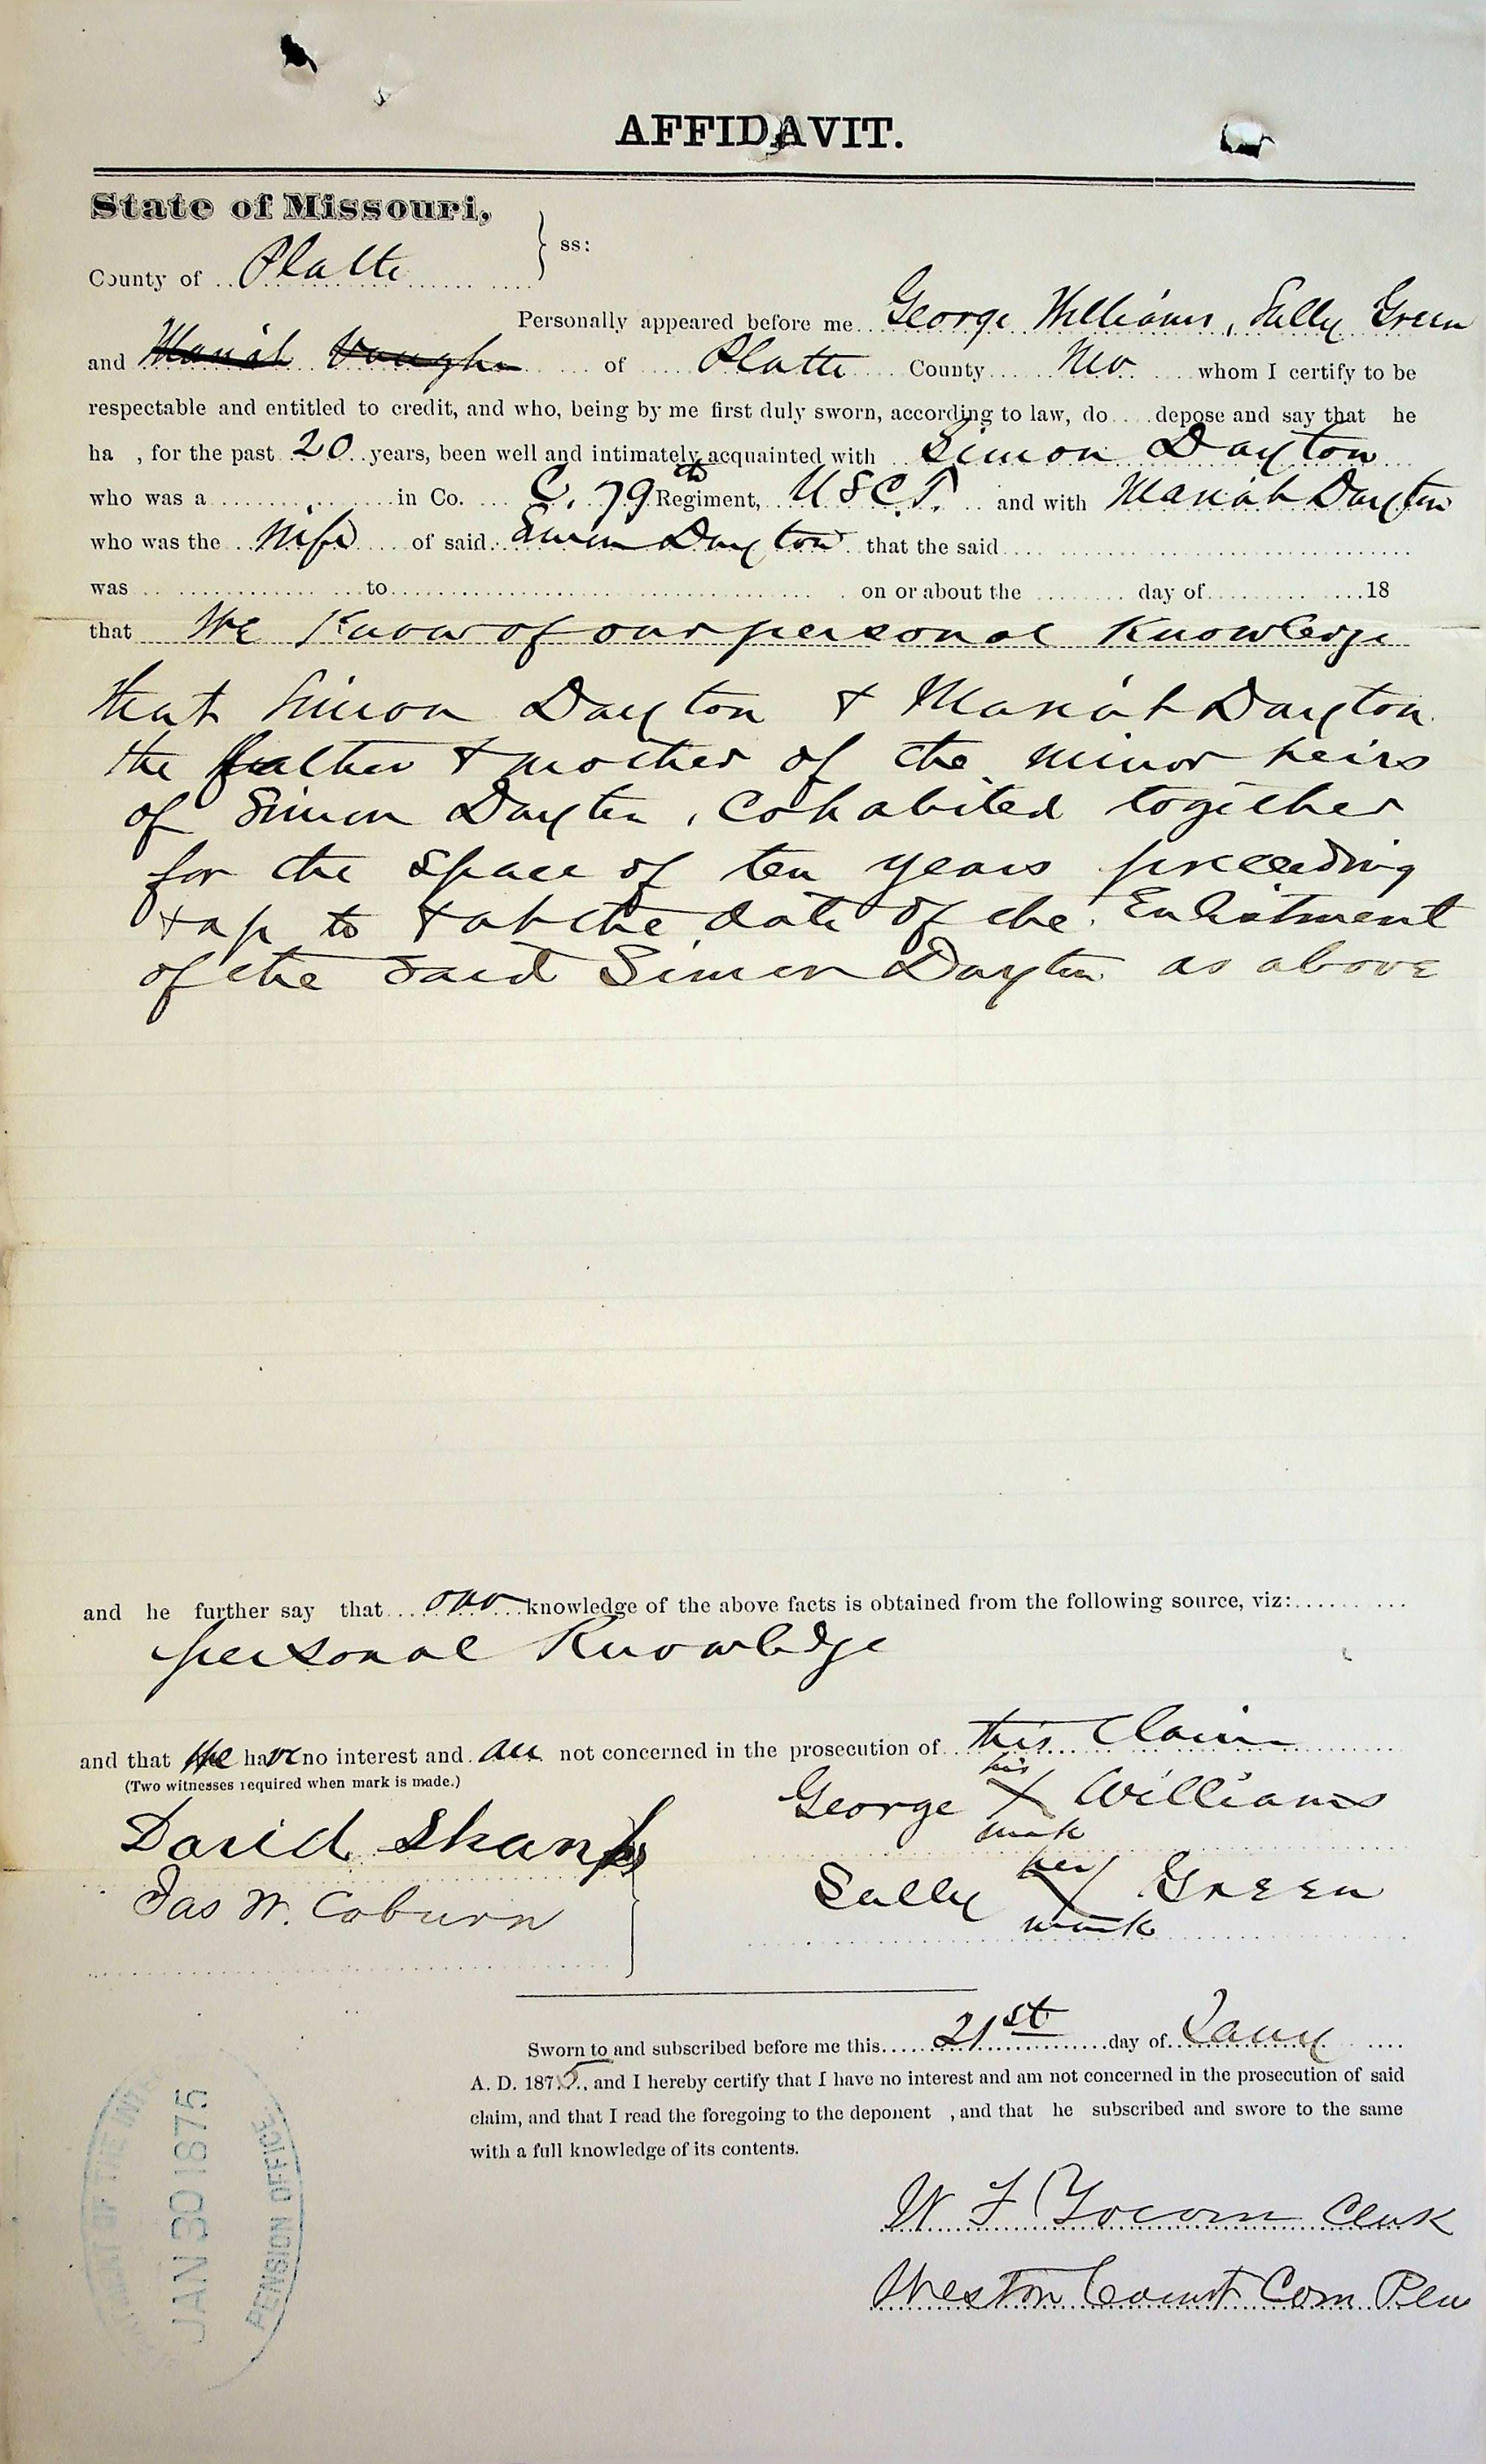 AFFIDAVIT.
State of Missouri,
County of Platte } ss:
Personally appeared before me George Williams, Sally Green
and Mariah Vaughn of Platte County Mo whom I certify to be
respectable and entitled to credit, and who, being by me first duly sworn, according to law, do depose and say that he
ha , for the past 20 years, been well and intimately acquainted with Simon Dayton
who was a in Co. C. 79th Regiment, U S C. T. and with Mariah Dayton
who was the Wife of said Simon Dayton that the said
was to on or about the day of 18
that We Know of our personal Knowledge
that Simon Dayton & Mariah Dayton
the father & mother of the minor heirs
of Simon Dayton, Cohabited together
for the space of ten years preceeding
& up to & at the date of the Enlistment
of the said Simon Dayton as above
and he further say that our knowledge of the above facts is obtained from the following source, viz:
personal Knowledge
and that We have no interest and are not concerned in the prosecution of this Claim
(Two witnesses required when mark is made.)
George his X mark Williams
David Shanks
Sally her X mark Green
Jas W. Coburn
Sworn to and subscribed before me this 21st day of Jany
A. D. 1875, and I hereby certify that I have no interest and am not concerned in the prosecution of said
claim, and that I read the foregoing to the deponent , and that he subscribed and swore to the same
with a full knowledge of its contents.
W F Yocom Clerk
Weston Court Com Pleas
JAN 30 1875
PENSION OFFICE